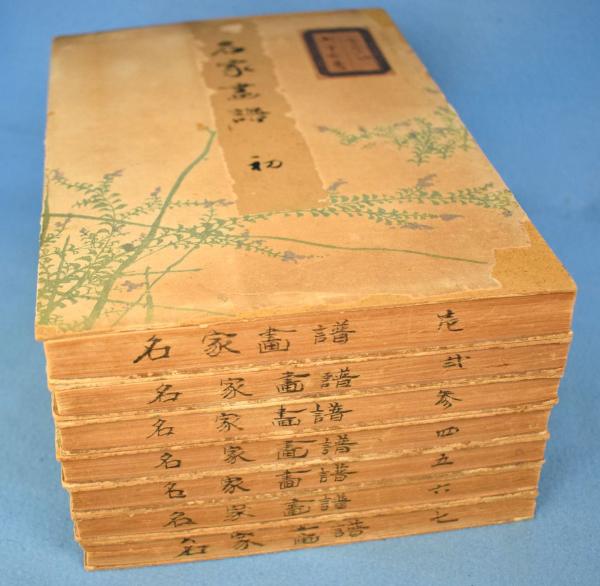 名家畫譜 初
名家畫譜 壱
名家畫譜 弐
名家畫譜 参
名家畫譜 四
名家畫譜 五
名家畫譜 六
名家畫譜 七